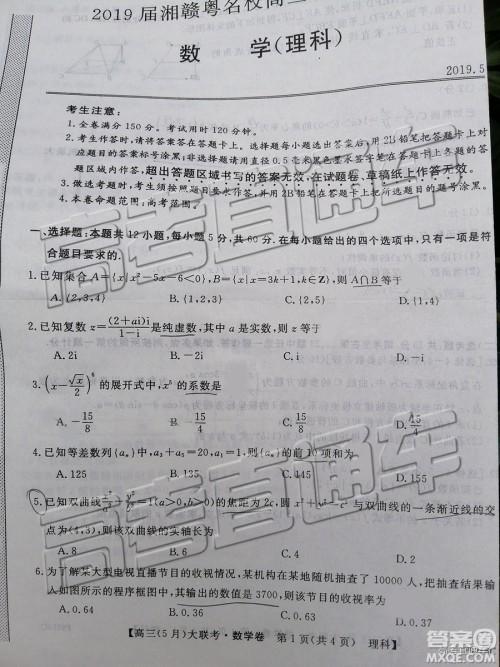 2019届湘赣粤名校高三
数 学(理科)
2019.5
考生注意:
1.全卷满分150分。考试用时120分钟。
2.考生作答时,请将答案答在答题卡上。选择题每小题选出答案后,用2B铅笔把答题卡上对
应题目的答案标号涂黑;非选择题请用直径0.5毫米黑色墨水签字笔在答题卡上各题的答
题区域内作答,超出答题区域书写的答案无效,在试题卷、草稿纸上作答无效。
3.做选考题时,考生须按照题目要求作答,并用2B铅笔在答题卡上把所选题目的题号涂黑。
4.本卷命题范围:高考范围。
一、选择题:本题共12小题,每小题5分,共60分。在每小题给出的四个选项中,只有一项是符
合题目要求的.
1.已知集合A={x|x²-5x-6<0},B={x|x=3k+1,k∈Z},则A∩B等于
A.{2,3,4} B.{1,2,4} C.{2,5} D.{1,4}
2.已知复数z=(2+ai)i/1-i是纯虚数,其中a是实数,则z等于
A.2i B.-2i C.i D.-i
3.(x-√x/2)⁶的展开式中,x⁵的系数是
A.-15/8 B.-15/4 C.15/8 D.15/4
4.已知等差数列{aₙ}中,a₂+a₅=20,a₁=1,则{aₙ}的前10项和为
A.125 B.135 C.145
5.已知双曲线x²/a²-y²/b²=1(a>0,b>0)的焦距为2c,圆x²+y²=c²与双曲线的一条渐近线的交
点为(4,3),则该双曲线的实轴长为
A.8 B.6 C.4 D.2
6.为了解某大型电视直播节目的收视情况,某机构在某地随机抽查了10000人,把抽查
输入如图所示的程序框图中,其输出的数值是3700,则该节目的收视
【高三(5月)大联考·数学卷 第1页(共4页) 理科】
高考直通车
高考直通车
答案圈